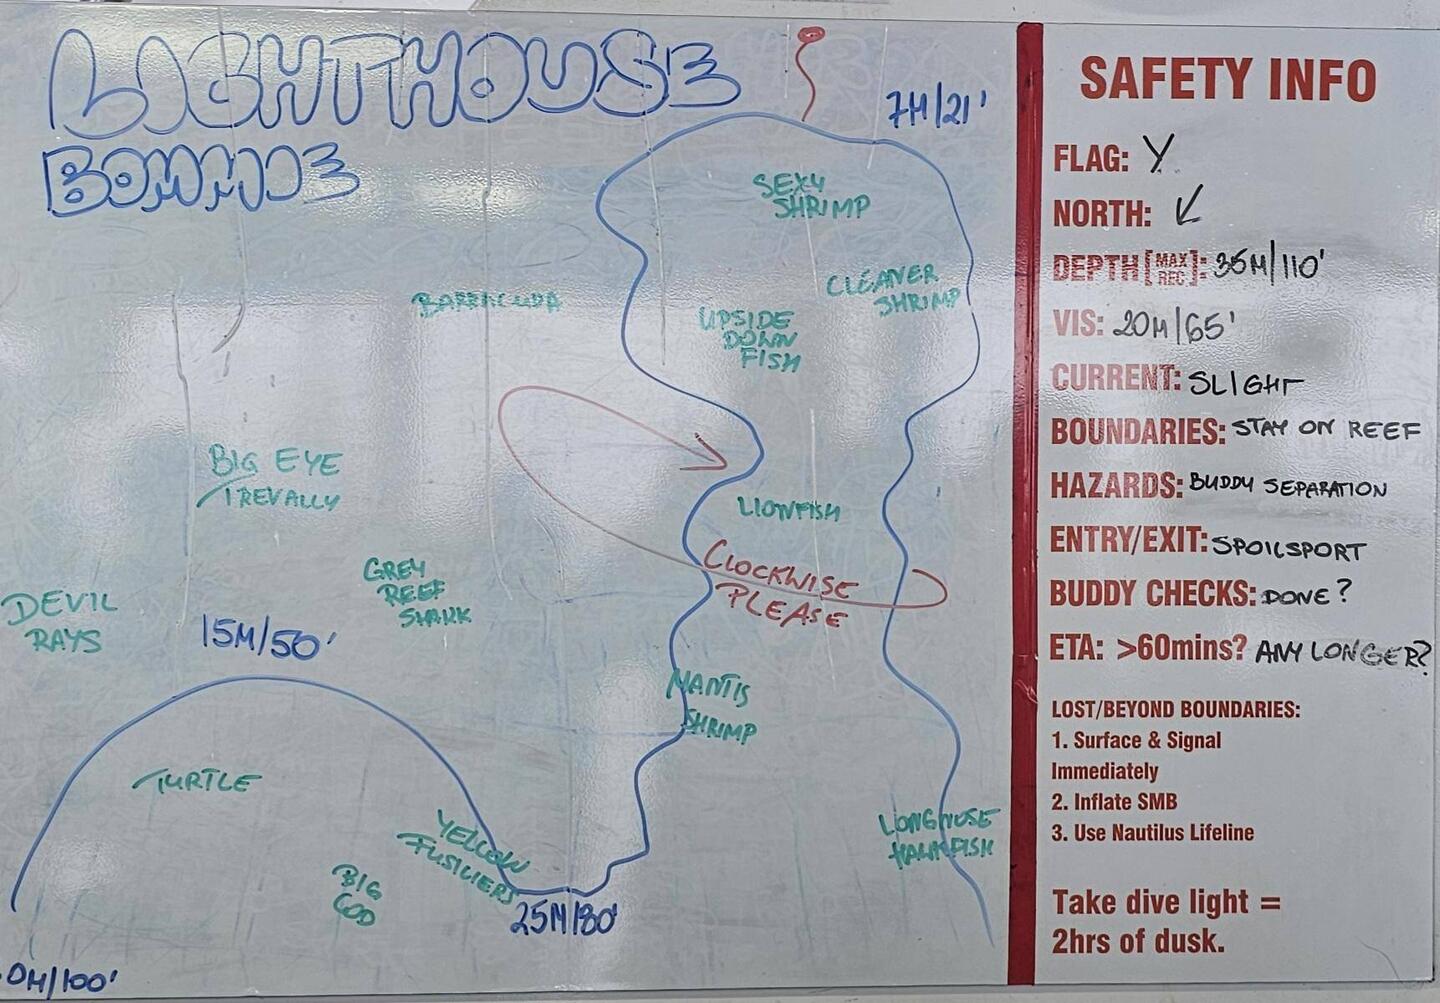 LIGHTHOUSE
BOMMIE
7M/21'
SEXY
SHRIMP
CLEANER
SHRIMP
BARRACUDA
UPSIDE
DOWN
FISH
BIG EYE
TREVALLY
LIONFISH
GREY
REEF
SHARK
CLOCKWISE
PLEASE
DEVIL
RAYS
15M/50'
MANTIS
SHRIMP
TURTLE
YELLOW
FUSILIERS
LONGNOSE
HAWKFISH
BIG
COD
25M/80'
0M/100'
SAFETY INFO
FLAG: Y
NORTH: ↙
DEPTH [MAX REC]: 35M/110'
VIS: 20M/65'
CURRENT: SLIGHT
BOUNDARIES: STAY ON REEF
HAZARDS: BUDDY SEPARATION
ENTRY/EXIT: SPOILSPORT
BUDDY CHECKS: DONE?
ETA: >60mins? ANY LONGER?
LOST/BEYOND BOUNDARIES:
1. Surface & Signal
Immediately
2. Inflate SMB
3. Use Nautilus Lifeline
Take dive light =
2hrs of dusk.